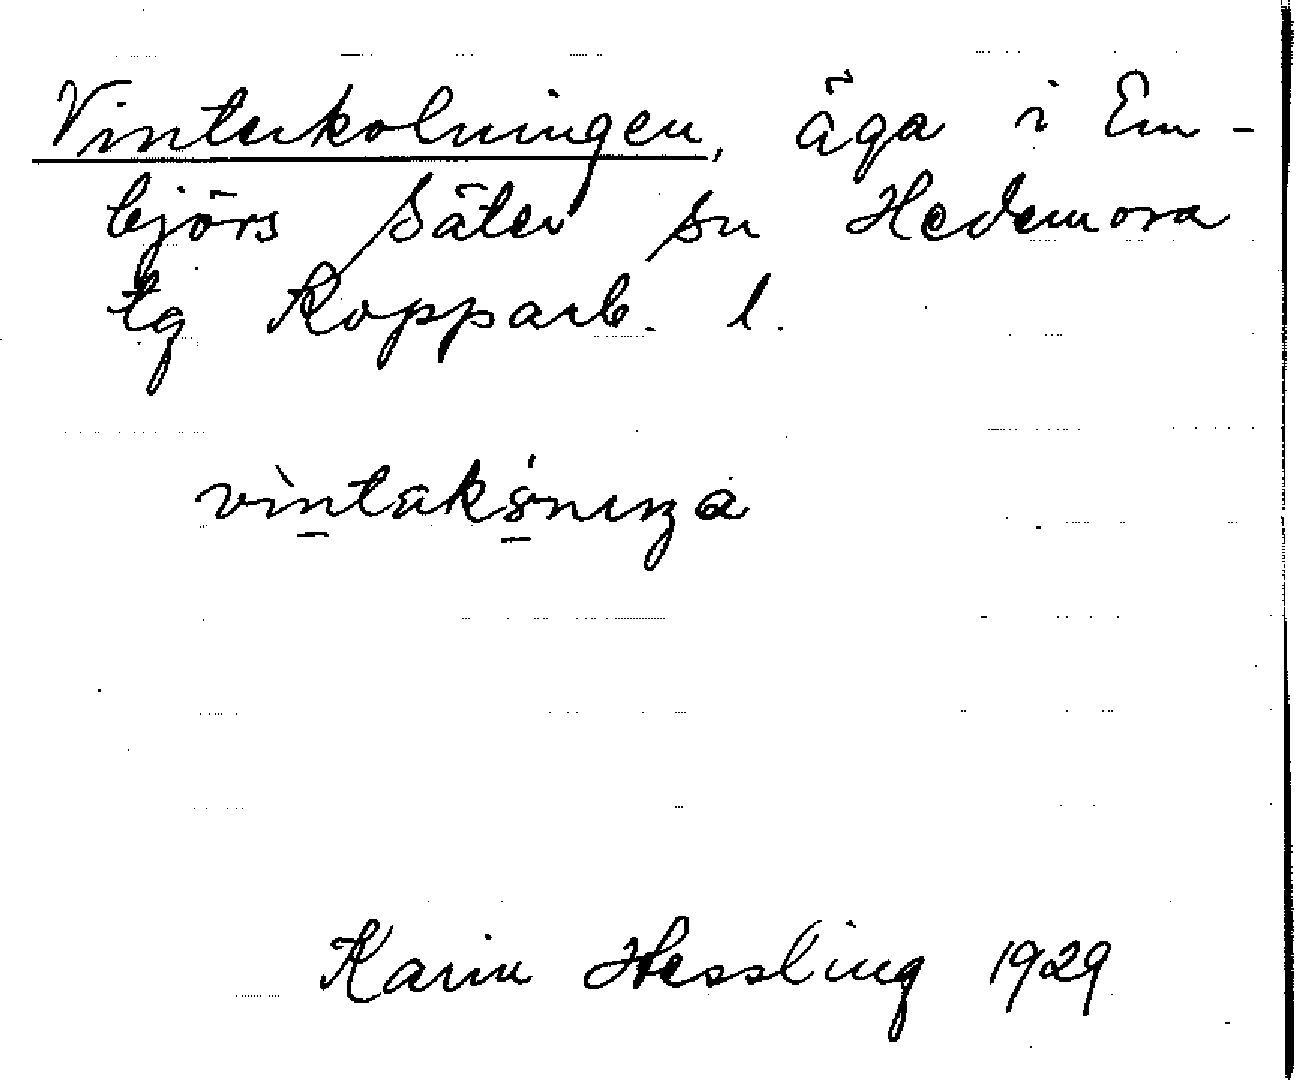 Vinterkolningen, äga i Em-
björs Säter sn Hedemora
tg Kopparb. l.
Karin Hessling 1929